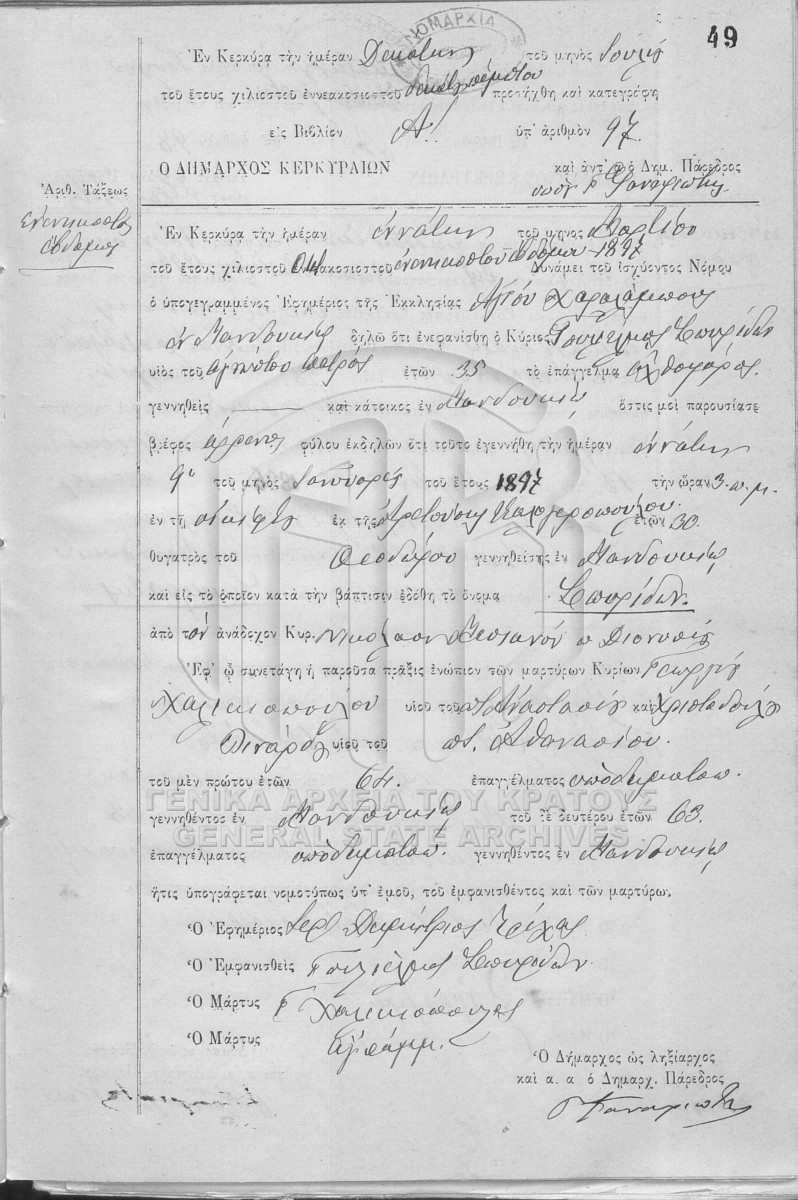 49
ΝΟΜΑΡΧΙΑ
Ἐν Κερκύρᾳ τὴν ἡμέραν Δεκάτην τοῦ μηνὸς
τοῦ ἔτους χιλιοστοῦ ἐννεακοσιοστοῦ δεκάτου πέμπτου προσήχθη καὶ κατεγράφη
εἰς Βιβλίον Α! ὑπ' ἀριθμὸν 97
Ο ΔΗΜΑΡΧΟΣ ΚΕΡΚΥΡΑΙΩΝ
καὶ ἀντ' αὐτοῦ ὁ Δημ. Πάρεδρος
Ἀριθ. Τάξεως
Ἐνενηκοστὸς
ἕβδομος
Ἐν Κερκύρᾳ τὴν ἡμέραν ἐννάτην τοῦ μηνὸς Μαρτίου
τοῦ ἔτους χιλιοστοῦ Ὀκτακοσιοστοῦ ἐνενηκοστοῦ ἑβδόμου 1897 Δυνάμει τοῦ ἰσχύοντος Νόμου
ὁ ὑπογεγραμμένος Ἐφημέριος τῆς Ἐκκλησίας Ἁγίου Χαραλάμπους
ἐν Μανδουκίῳ δηλῶ ὅτι ἐνεφανίσθη ὁ Κύριος Γουλιέλμος Σπυρίδων
υἱὸς τοῦ ἀγνώστου πατρὸς ἐτῶν 35 τὸ ἐπάγγελμα ἀχθοφόρος.
γεννηθεὶς — καὶ κάτοικος ἐν Μανδουκίῳ ὅστις μοὶ παρουσίασε
βρέφος ἄρρενος φύλου ἐκδηλῶν ὅτι τοῦτο ἐγεννήθη τὴν ἡμέραν ἐννάτην
9ην τοῦ μηνὸς Ἰανουαρίου τοῦ ἔτους 1897 τὴν ὥραν 3. π. μ.
ἐν τῇ οἰκίᾳ ἐκ τῆς Ἀρετούσης Καλογεροπούλου ἐτῶν 30.
θυγατρὸς τοῦ Θεοδώρου γεννηθείσης ἐν Μανδουκίῳ
καὶ εἰς τὸ ὁποῖον κατὰ τὴν βάπτισιν ἐδόθη τὸ ὄνομα Σπυρίδων.
ἀπὸ τὸν ἀνάδοχον Κυρ. Νικόλαον Διονυσίου
Ἐφ' ᾧ συνετάγη ἡ παροῦσα πρᾶξις ἐνώπιον τῶν μαρτύρων Κυρίων Γεωργίου
Χαλικιοπούλου υἱοῦ τοῦ Ἀναστασίου καὶ Χριστοδούλου
υἱοῦ τοῦ π. Ἀθανασίου.
τοῦ μὲν πρώτου ἐτῶν 64. ἐπαγγέλματος ὑποδηματοπ.
ΓΕΝΙΚΑ ΑΡΧΕΙΑ ΤΟΥ ΚΡΑΤΟΥΣ
γεννηθέντος ἐν Μανδουκίῳ τοῦ δὲ δευτέρου ἐτῶν 63.
GENERAL STATE ARCHIVES
ἐπαγγέλματος ὑποδηματοπ. γεννηθέντος ἐν Μανδουκίῳ
ἥτις ὑπογράφεται νομοτύπως ὑπ' ἐμοῦ, τοῦ ἐμφανισθέντος καὶ τῶν μαρτύρω.
Ὁ Ἐφημέριος Ἱερ. Δημήτριος
Ὁ Ἐμφανισθεὶς Γουλιέλμος Σπυρίδων
Ὁ Μάρτυς Γ Χαλικιόπουλος
Ὁ Μάρτυς ἀγράμμ.
Ὁ Δήμαρχος ὡς ληξίαρχος
καὶ α. α ὁ Δημαρχ. Πάρεδρος